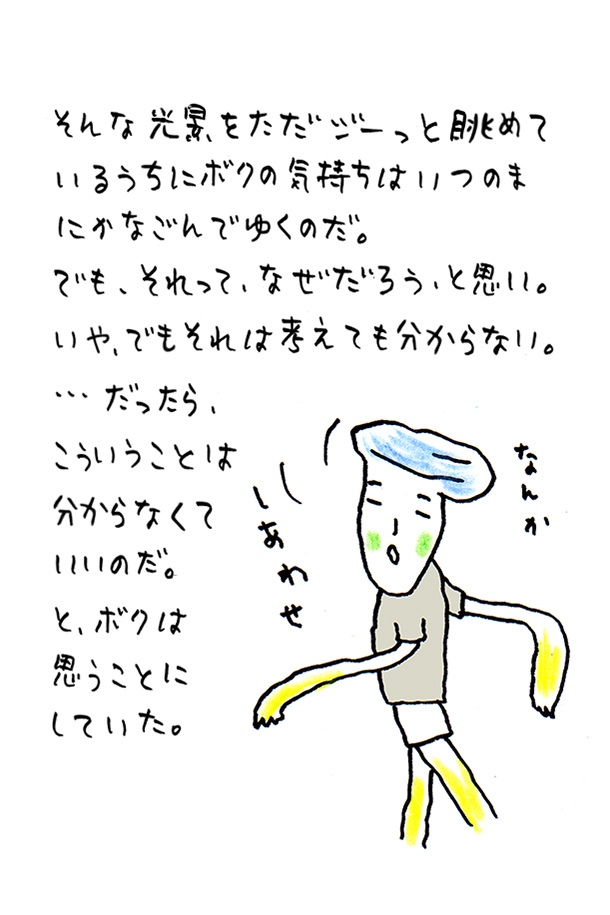 そんな光景をただジーっと眺めて
いるうちにボクの気持ちはいつのま
にかなごんでゆくのだ。
でも、それって、なぜだろう、と思い。
いや、でもそれは考えても分からない。
…だったら、
こういうことは
分からなくて
いいのだ。
と、ボクは
思うことに
していた。
なんか
しあわせ